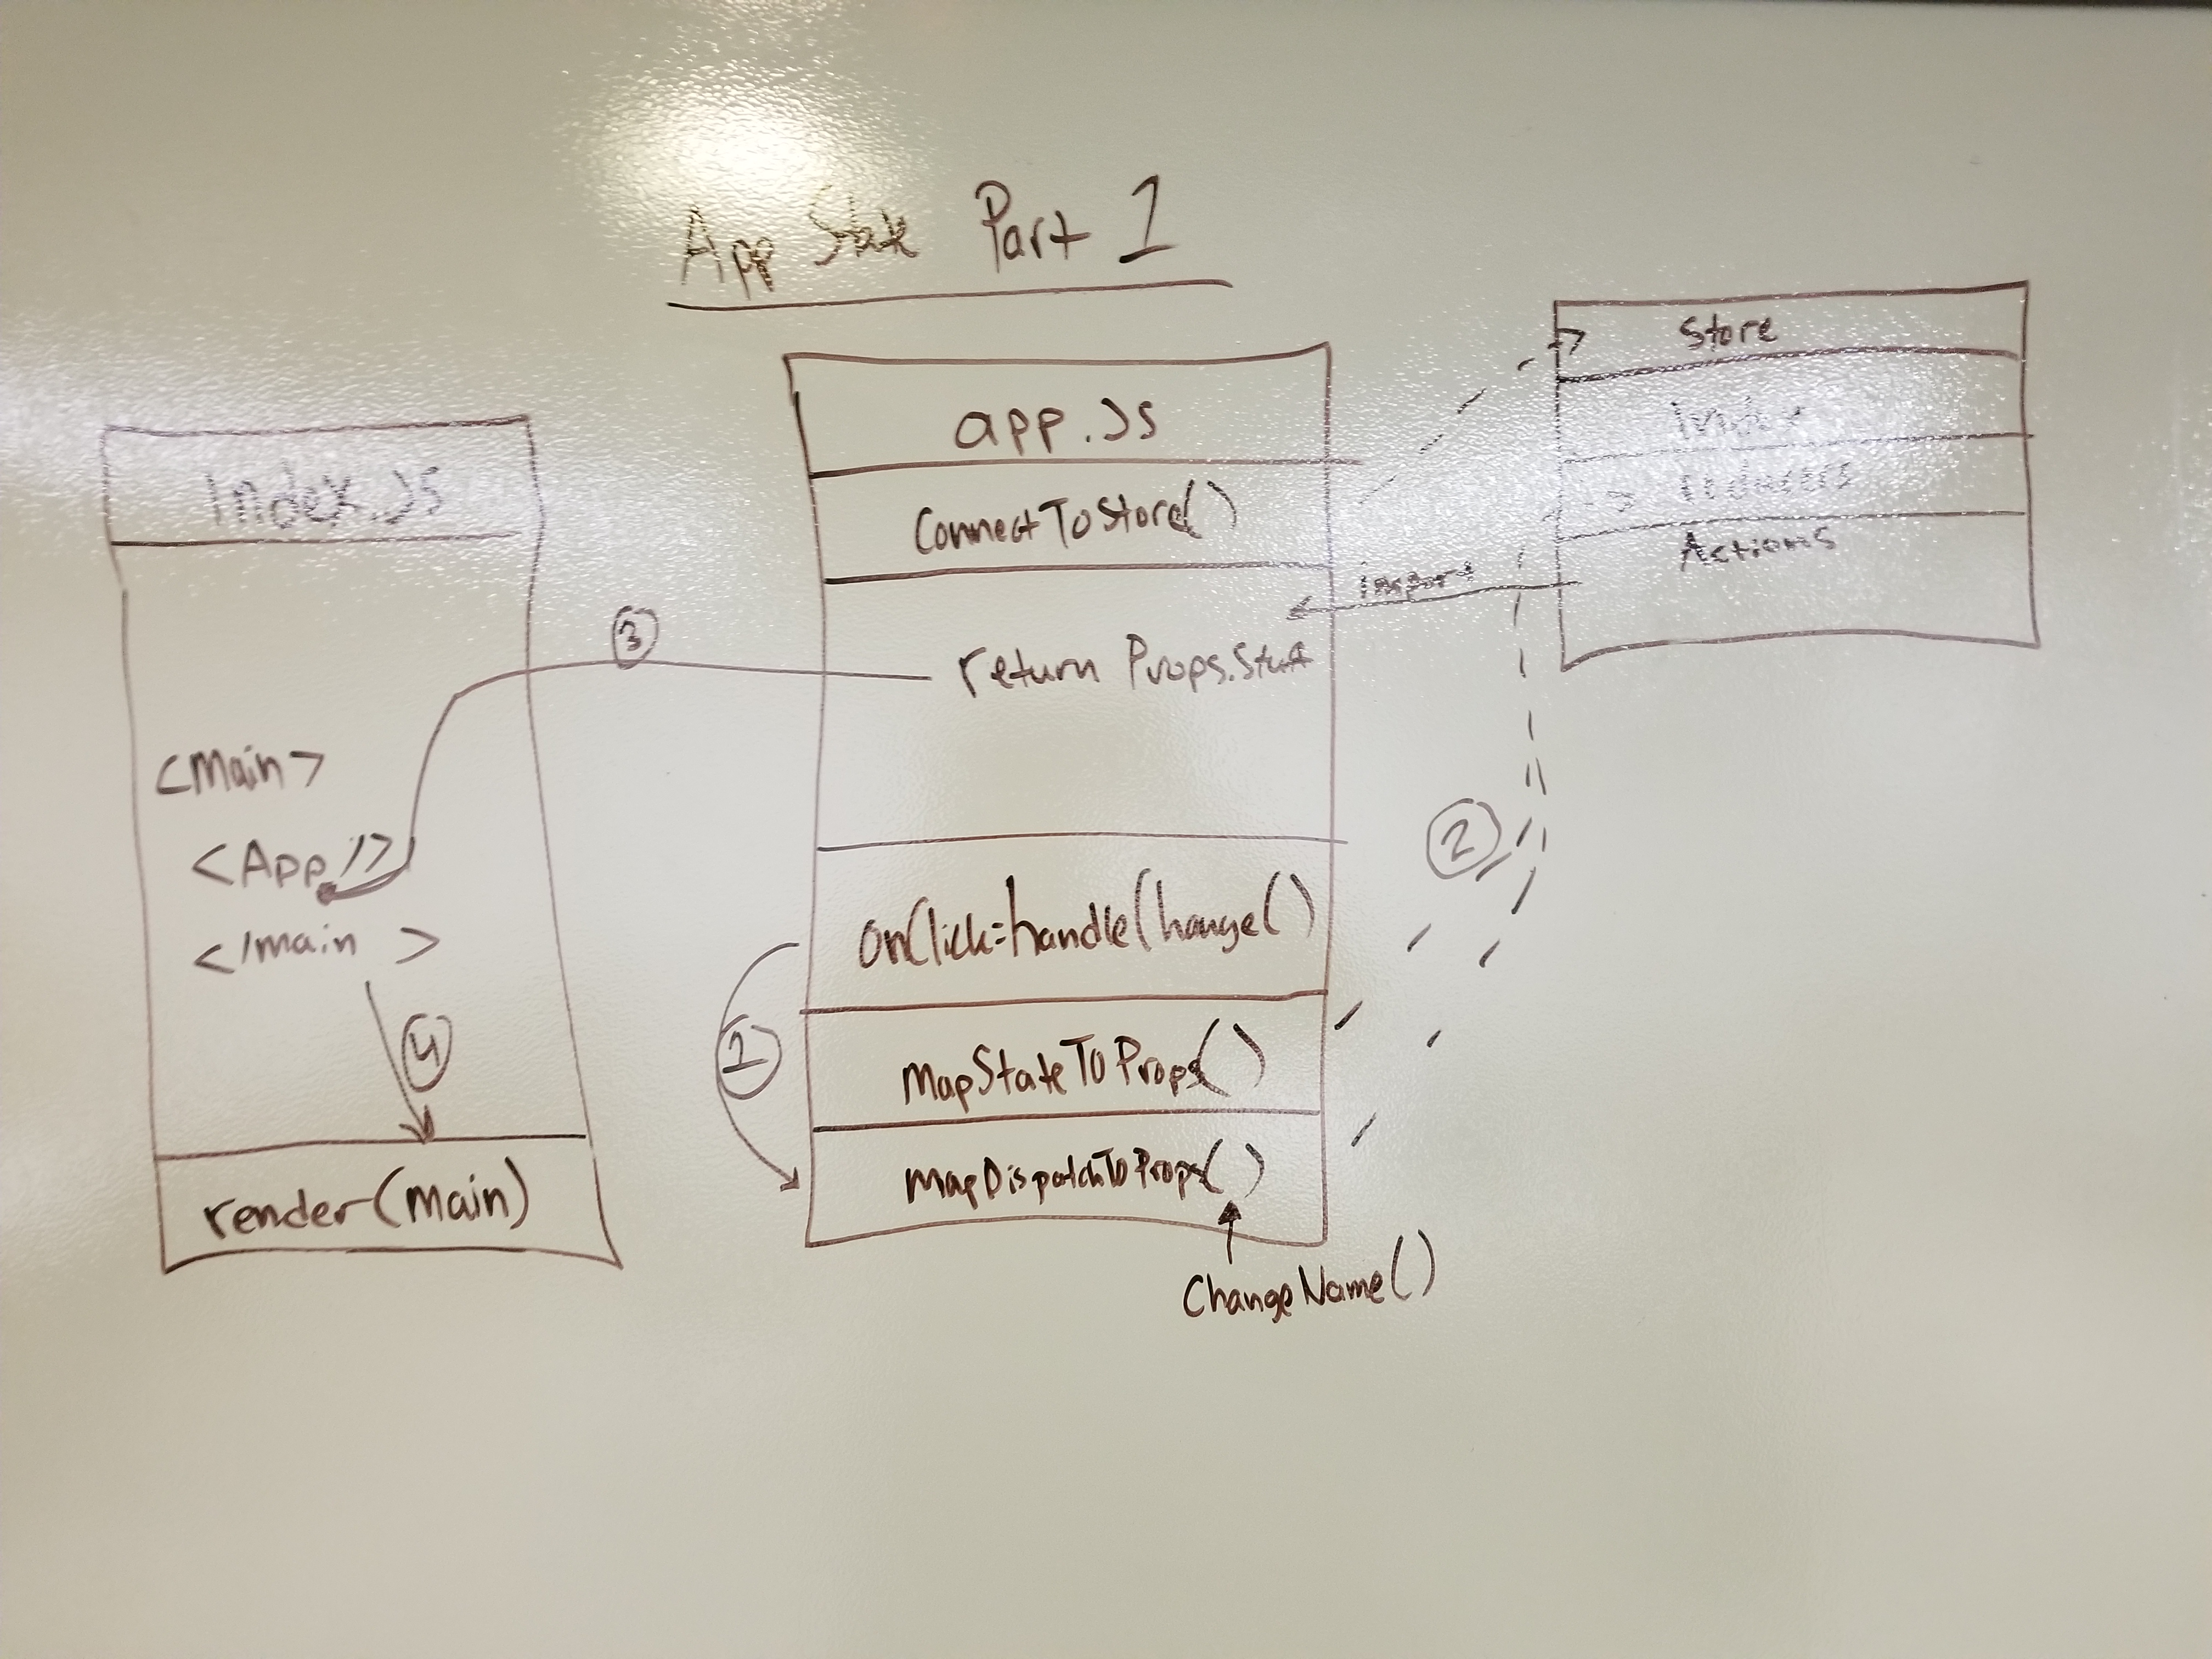 App State Part 1
Index.Js
<Main>
<App />
</main >
4
render(Main)
3
app.Js
ConnectToStore()
return Props.Stuff
onClick=handleChange()
1
MapStateToProps()
MapDispatchToProps()
ChangeName()
import
2
Store
Index
reducers
Actions